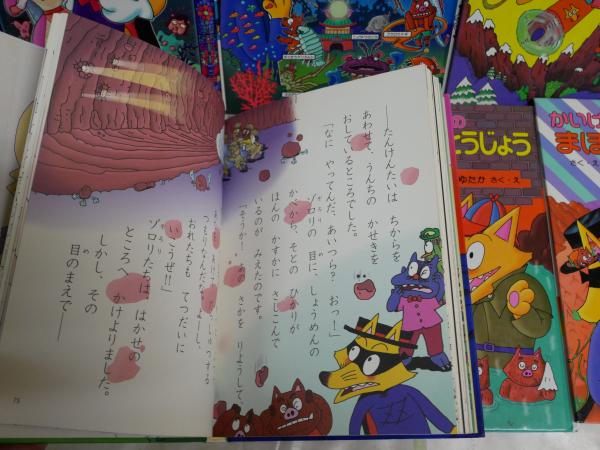 ――たんけんたいは　ちからを
あわせて、うんちの　かせきを
おしているところでした。
「なに　やってんだ、あいつら？　おっ！」
ゾロリの　目に、しょうめんの
かべから、そとの　ひかりが
ほんの　かすかに　さしこんで
いるのが　みえたのです。
「そうか！　あの　さかを　りようして、
おれたちも　てつだいに
いこうぜ!!」
ゾロリたちは、はかせの
ところへ　かけよりました。
しかし、その
目のまえで――
75
とうじょう
ゆたか　さく・え
かいけ
まほ
さく・え